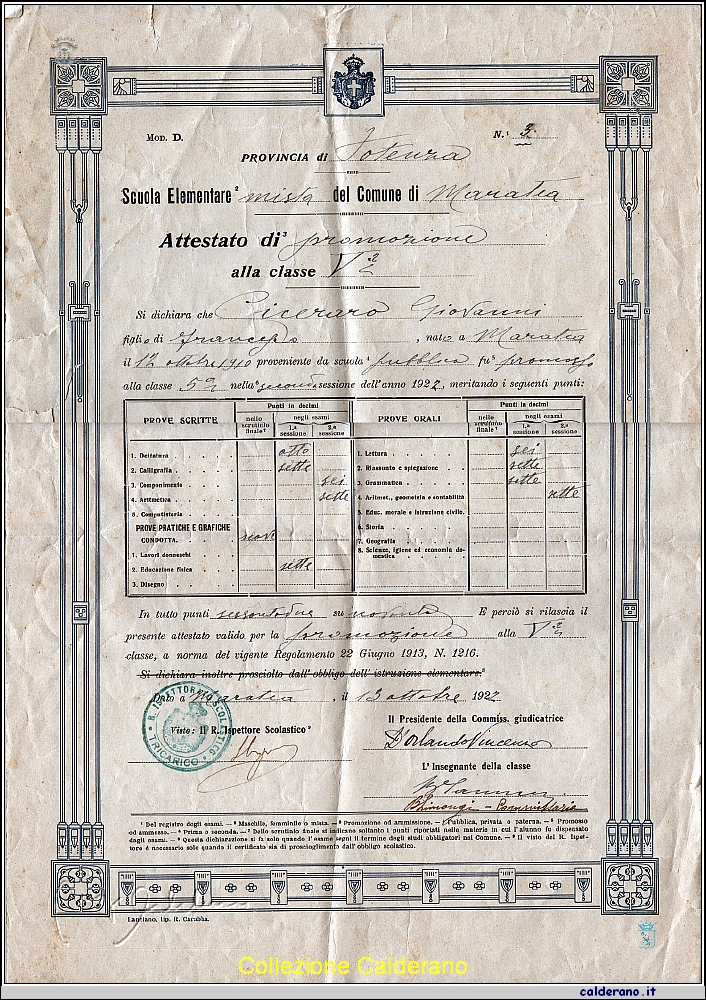 MOD. D.
N.¹ 3
PROVINCIA di Potenza
Scuola Elementare² mista del Comune di Maratea
Attestato di³ promozione
alla classe Vª
Si dichiara che Ciceraro Giovanni
figlio di Francesco , nato a Maratea
il 12 ottobre 1910 proveniente da scuola⁴ pubblica fu⁵ promosso
alla classe 5ª nella⁶ seconda sessione dell'anno 1922, meritando i seguenti punti:
PROVE SCRITTE
Punti in decimi
nello scrutinio finale⁷
negli esami
1.ª sessione
2.ª sessione
PROVE ORALI
Punti in decimi
nello scrutinio finale⁷
negli esami
1.ª sessione
2.ª sessione
1. Dettatura otto
2. Calligrafia sette
3. Componimento sei
4. Aritmetica sette
5. Computisteria
PROVE PRATICHE E GRAFICHE
CONDOTTA. nove
1. Lavori donneschi
2. Educazione fisica sette
3. Disegno
1. Lettura sei
2. Riassunto e spiegazione sette
3. Grammatica sette
4. Aritmet., geometria e contabilità sette
5. Educ. morale e istruzione civile.
6. Storia
7. Geografia
8. Scienze, igiene ed economia domestica
In tutto punti sessantadue su novanta E perciò si rilascia il
presente attestato valido per la promozione alla Vª
classe, a norma del vigente Regolamento 22 Giugno 1913, N. 1216.
Si dichiara inoltre prosciolto dall'obbligo dell'istruzione elementare.⁸
Dato a Maratea, il 13 ottobre 1922
R. ISPETTORE SCOLASTICO
TRICARICO
Visto: Il R. Ispettore Scolastico⁹
Il Presidente della Commiss. giudicatrice
D'Orlando Vincenzo
L'Insegnante della classe
¹ Del registro degli esami. — ² Maschile, femminile o mista. — ³ Promozione od ammissione. — ⁴ Pubblica, privata o paterna. — ⁵ Promosso
od ammesso. — ⁶ Prima o seconda. — ⁷ Dello scrutinio finale si indicano soltanto i punti riportati nelle materie in cui l'alunno fu dispensato
dagli esami. — ⁸ Questa dichiarazione si fa solo quando l'esame segni il termine degli studi obbligatori nel Comune. — ⁹ Il visto del R. Ispettore
è necessario solo quando il certificato sia di proscioglimento dall'obbligo scolastico.
Lanciano, tip. R. Carabba.
Collezione Calderano
calderano.it